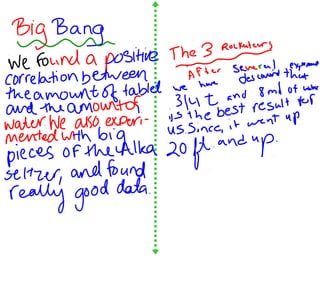 Big Bang
We found a positive
correlation between
the amount of tablet
and the amount of
water. We also experi-
mented with big
pieces of the Alka
seltzer, and found
really good data.
The 3 Rocketeers
After several
we have discovered that
3/4 t and 8 ml of
is the best result for
us since, it went up
20 ft. and up.